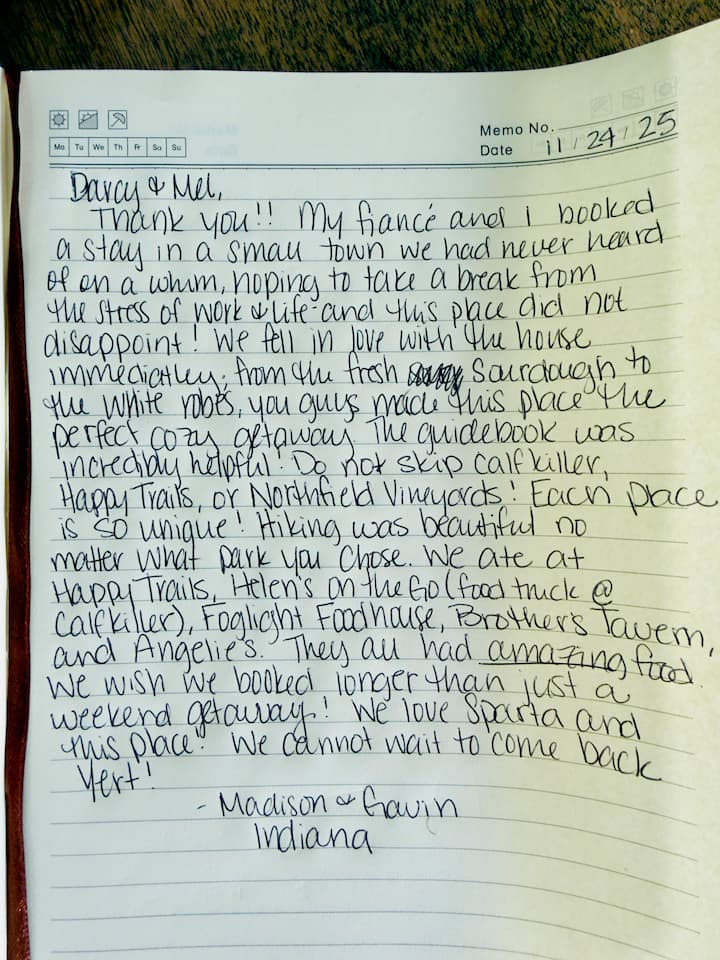 Memo No.
Mo Tu We Th Fr Sa Su
Date 11 / 24 / 25
Darcy & Mel,
Thank you!! My fiancé and I booked
a stay in a small town we had never heard
of on a whim, hoping to take a break from
the stress of work & life-and this place did not
disappoint! We fell in love with the house
immediatley; from the fresh Sourdough to
the white robes, you guys made this place the
perfect cozy getaway. The guidebook was
incredibly helpful! Do not skip Calfkiller,
Happy Trails, or Northfield Vineyards! Each place
is so unique! Hiking was beautiful no
matter what park you chose. We ate at
Happy Trails, Helen's on the Go (food truck @
Calfkiller), Foglight Foodhouse, Brothers Tavern,
and Angelie's. They all had amazing food.
We wish we booked longer than just a
weekend getaway! We love Sparta and
this place! We cannot wait to come back
- Madison & Gavin
Indiana